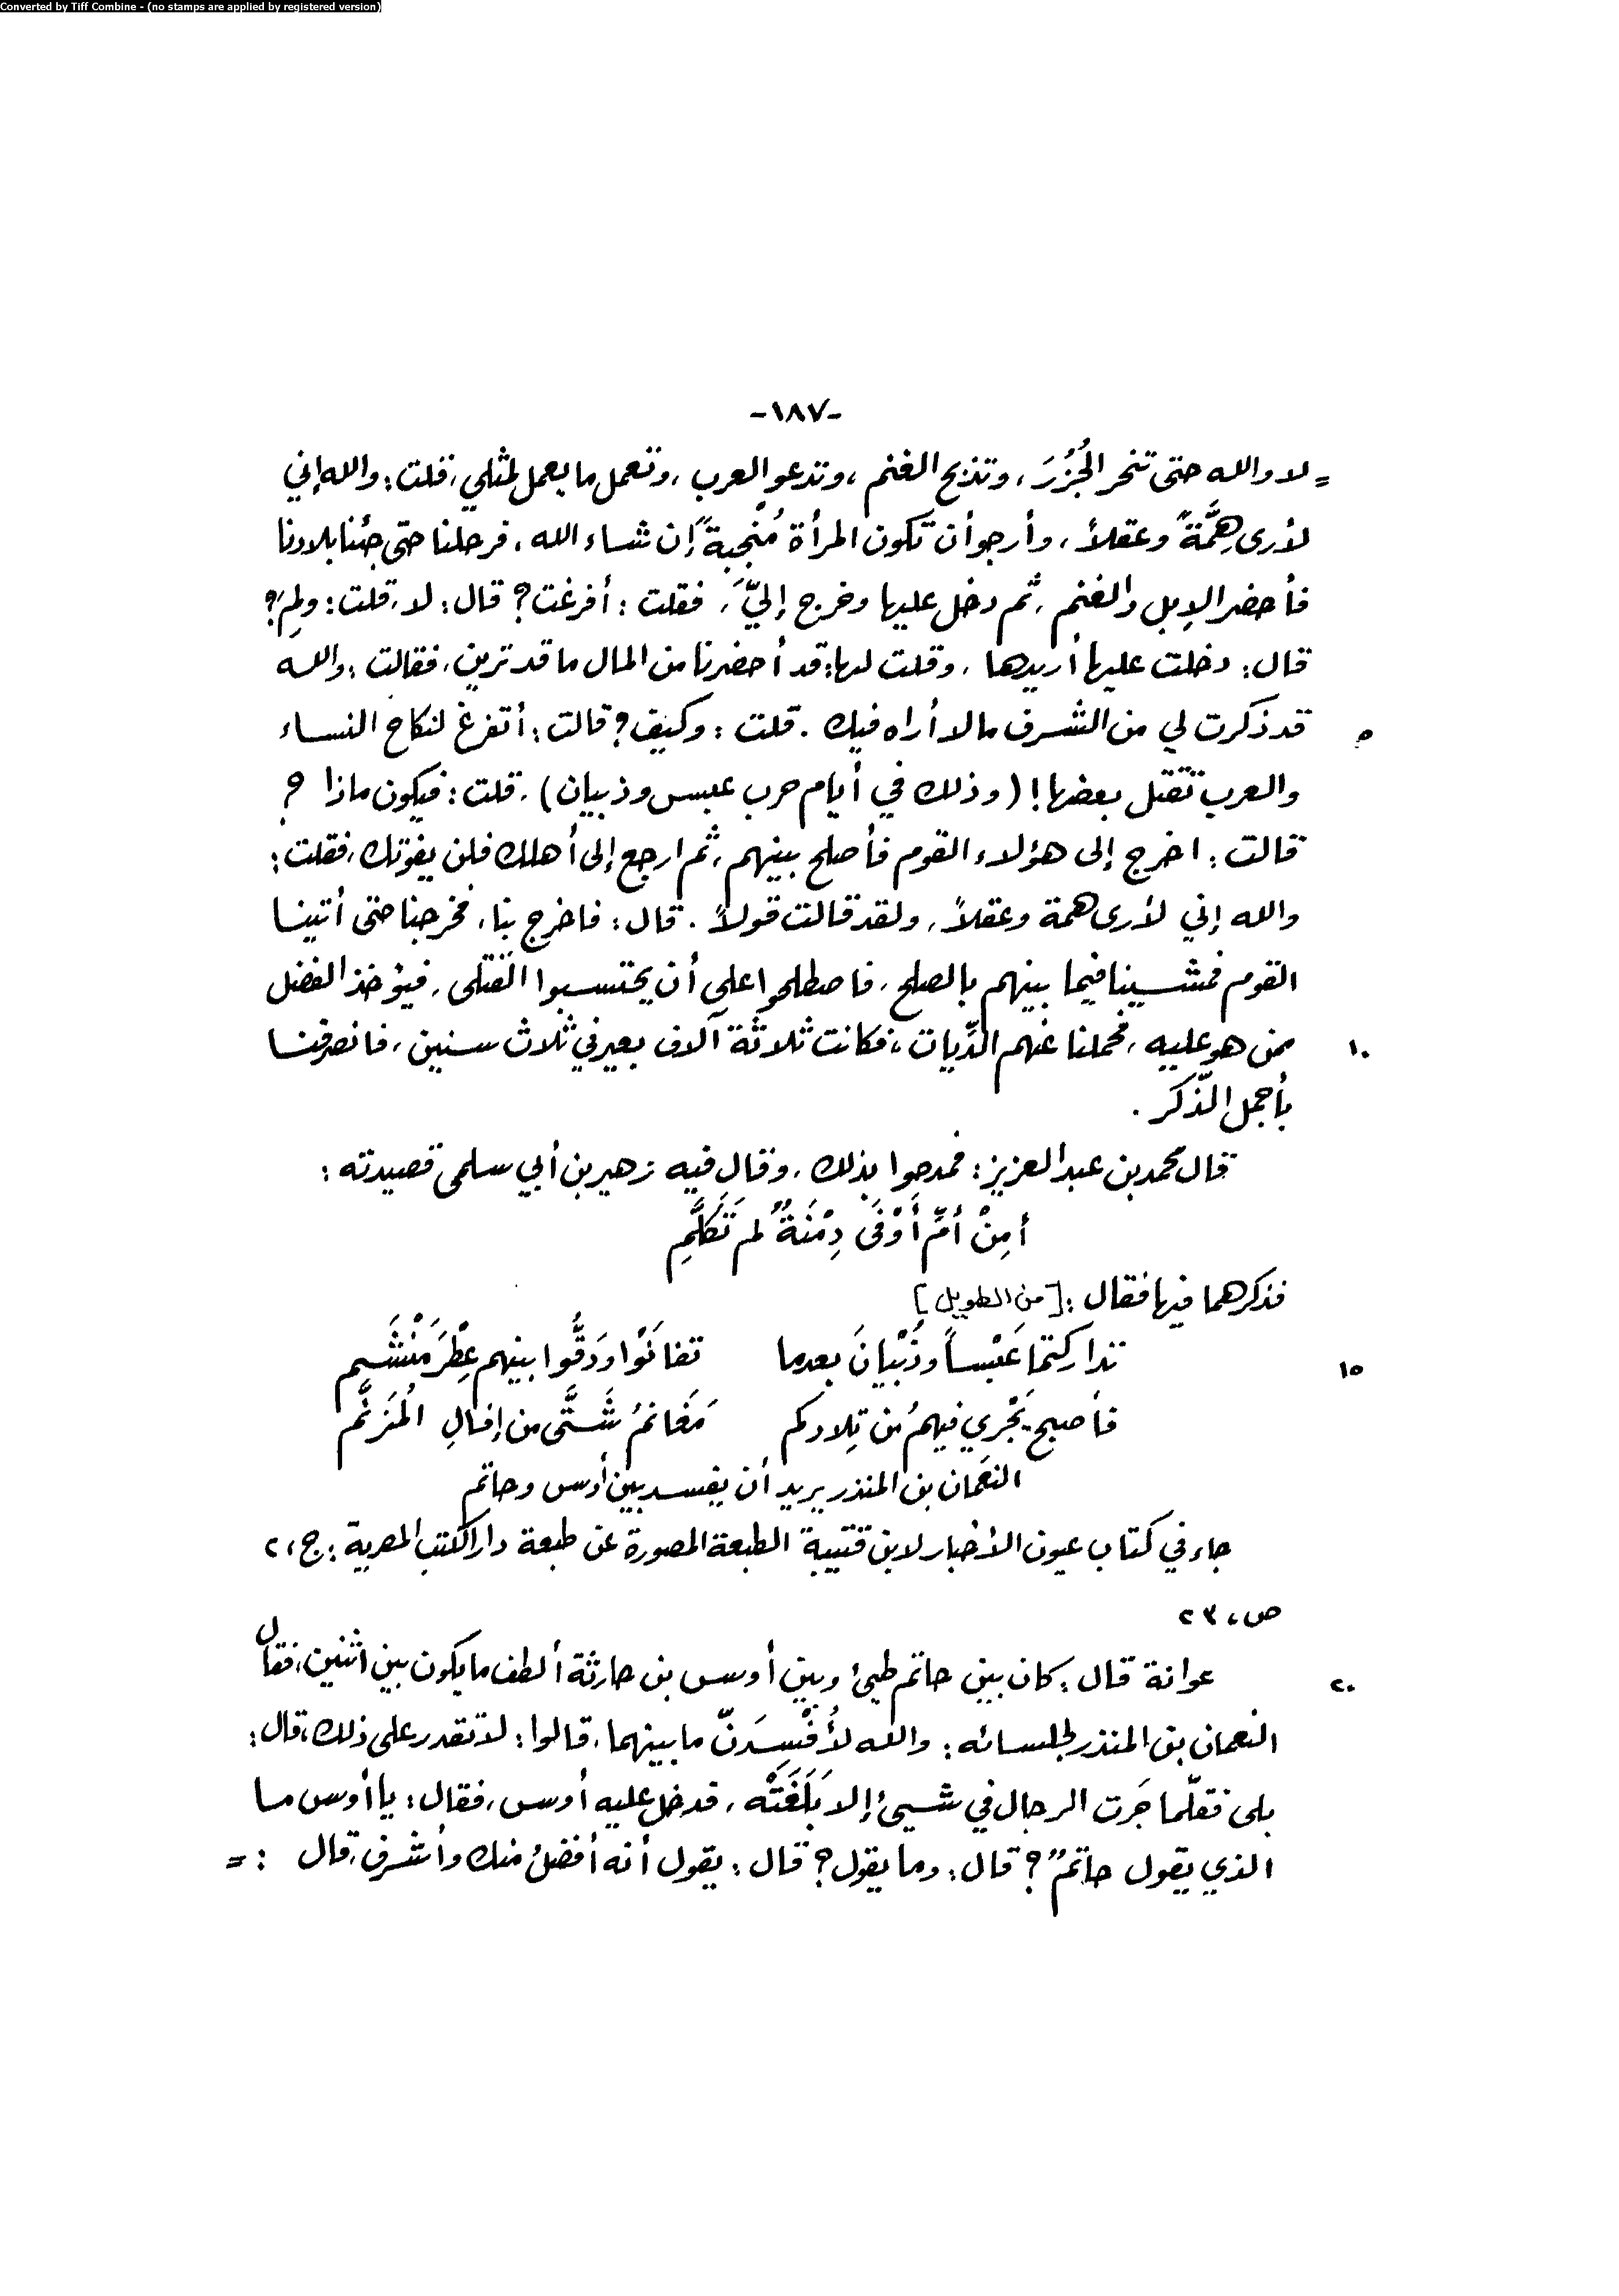 Converted by Tiff Combine - (no stamps are applied by registered version)
-١٨٧-
= لا والله حتى تنحر الجُزُرَ، وتذبح الغنم، وتدعو العرب، وتعمل ما يعمل لمثلي، قلت: والله إني
لأرى هِمَّةً وعقلاً، وأرجو أن تكون المرأة مُنْجِبةً إن شاء الله، فرحلنا حتى جئنا بلادنا
فأحضر الإبل والغنم، ثم دخل عليها وخرج إليَّ، فقلت: أفرغت؟ قال: لا، قلت: ولِمَ؟
قال: دخلت عليها أريدها، وقلت لها: قد أحضرنا من المال ما قد ترين، فقالت: والله
٥ قد ذكرت لي من الشرف مالا أراه فيك. قلت: وكيف؟ قالت: أتفرغ لنكاح النساء
والعرب تَقتل بعضها! (وذلك في أيام حرب عبس وذبيان). قلت: فيكون ماذا؟
قالت: اخرج إلى هؤلاء القوم فأصلح بينهم، ثم ارجع إلى أهلك فلن يفوتك، فقلت:
والله إني لأرى همة وعقلاً، ولقد قالت قولاً. قال: فاخرج بنا، فخرجنا حتى أتينا
القوم فمشينا فيما بينهم بالصلح، فاصطلحوا على أن يحتسبوا القتلى، فيؤخذ الفضل
١٠ ممن هو عليه، فحملنا عنهم الدِّيات، فكانت ثلاثة آلاف بعير في ثلاث سنين، فانصرفنا
بأجمل الذّكر.
قال محمد بن عبد العزيز: فمدحوا بذلك، وقال فيه زهير بن أبي سلمى قصيدته:
أمِنْ أمِّ أَوْفَى دِمْنَةٌ لم تَكَلَّمِ
فذكرهما فيها فقال: [من الطويل]
١٥ تداركتما عَبْساً وذُبْيانَ بعدما تفانَوْا ودَقُّوا بينهم عِطْرَ مَنْشَمِ
فأصبح يَجْري فيهمُ من تِلادكم مَغَانمُ شَتَّى من إفالِ المُزَنَّم
النعمان بن المنذر يريد أن يفسد بين أوس وحاتم
جاء في كتاب عيون الأخبار لابن قتيبة الطبعة المصورة عن طبعة دار الكتب المصرية: ج، ٢
ص، ٢٣
٢٠ عوانة قال: كان بين حاتم طيئ وبين أوس بن حارثة ألطف ما يكون بين اثنين، فقال
النعمان بن المنذر لجلسائه: والله لأُفْسِدَنّ ما بينهما، قالوا: لا تقدر على ذلك، قال:
بلى فقلّما جَرَت الرجال في شيئ إلا بَلَغَتْه، فدخل عليه أوس، فقال: يا أوس ما
الذي يقول حاتمٌ؟ قال: وما يقول؟ قال: يقول أنه أفضلُ منك وأشرف، قال: =